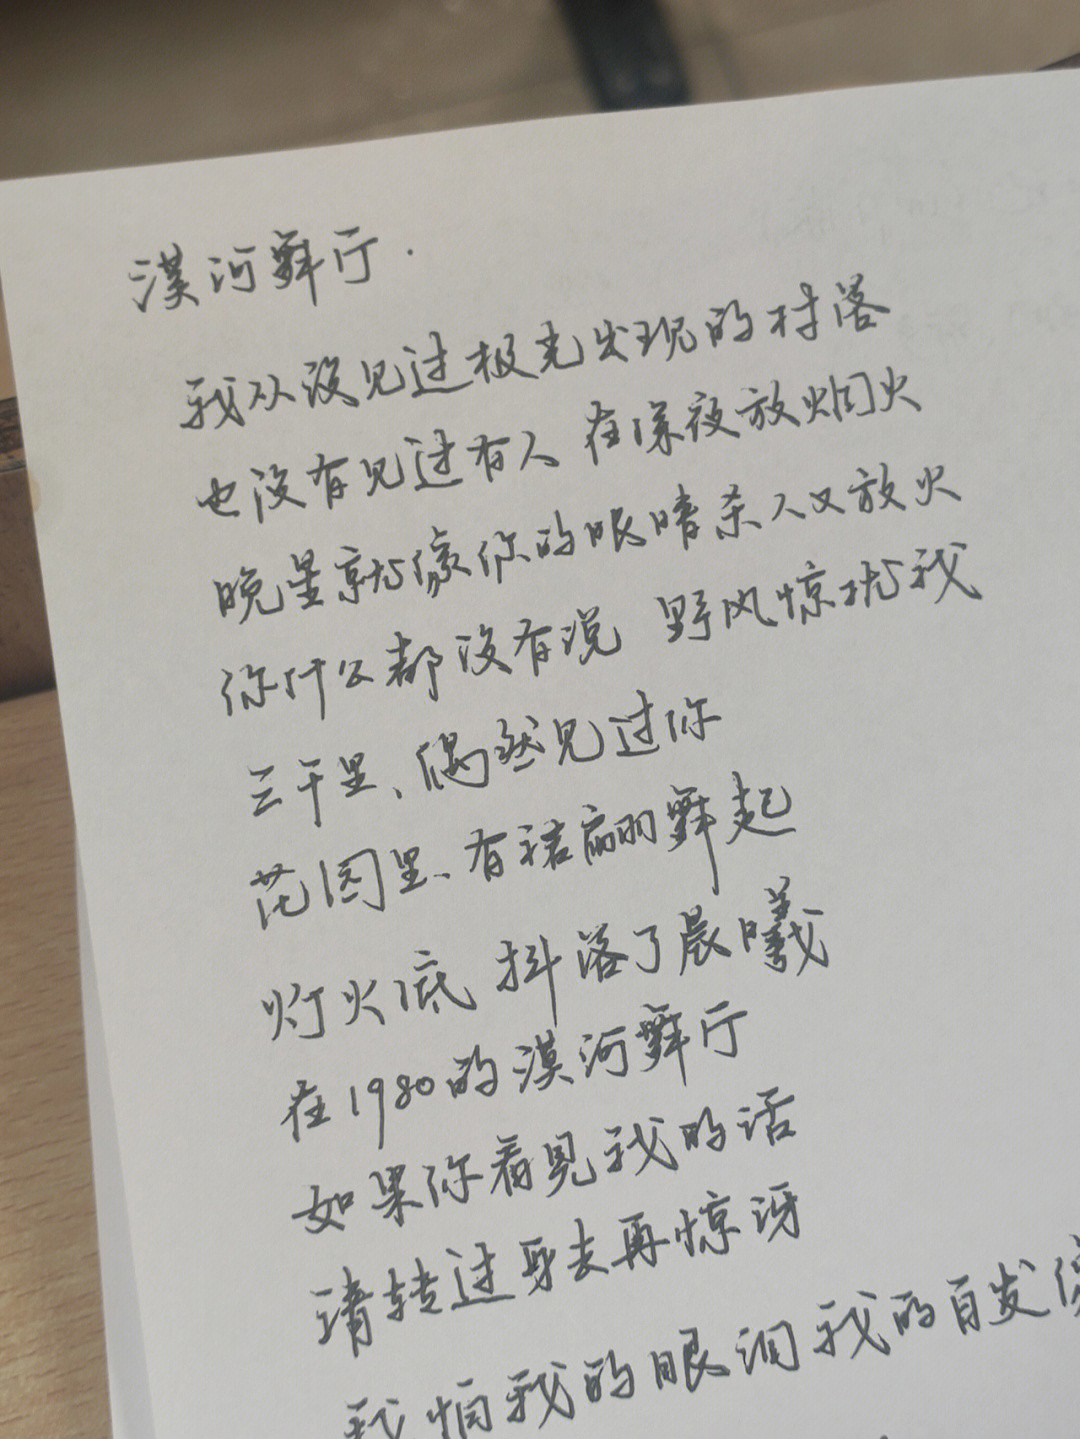 漠河舞厅.
我从没见过极光出现的村落
也没有见过有人 在深夜放烟火
晚星就像你的眼睛杀人又放火
你什么都没有说 野风惊扰我
三千里、偶然见过你
花园里、有裙廊舞起
灯火底 抖落了晨曦
在1980的漠河舞厅
如果你看见我的话
请转过身去再惊讶
我怕我的眼泪我的白发像